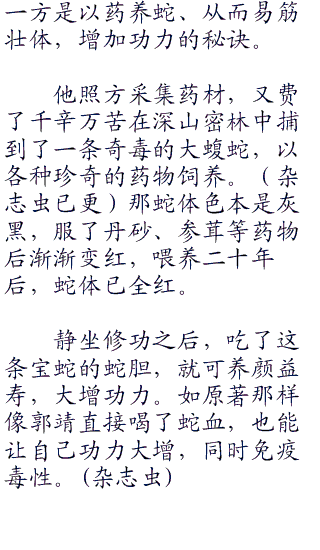 一方是以药养蛇、从而易筋
壮体，增加功力的秘诀。
他照方采集药材，又费
了千辛万苦在深山密林中捕
到了一条奇毒的大蝮蛇，以
各种珍奇的药物饲养。（杂
志虫已更）那蛇体色本是灰
黑，服了丹砂、参茸等药物
后渐渐变红，喂养二十年
后，蛇体已全红。
静坐修功之后，吃了这
条宝蛇的蛇胆，就可养颜益
寿，大增功力。如原著那样
像郭靖直接喝了蛇血，也能
让自己功力大增，同时免疫
毒性。（杂志虫）